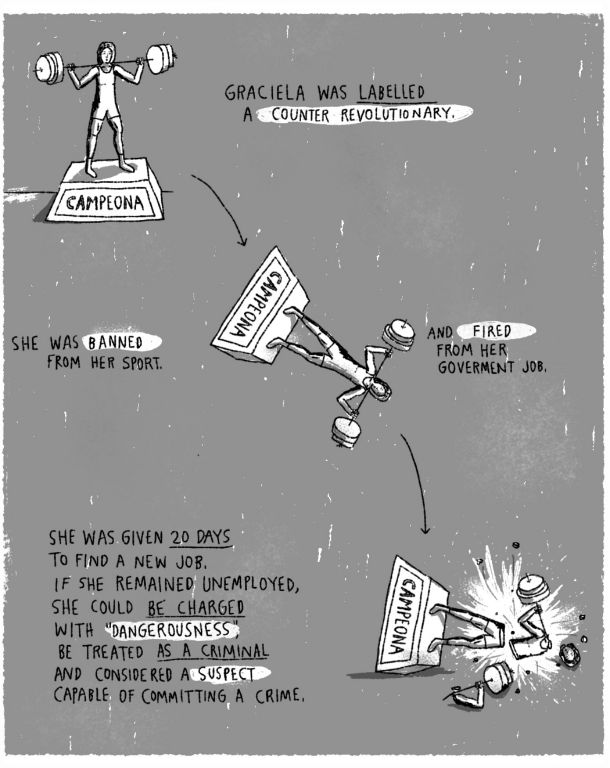 GRACIELA WAS LABELLED
A COUNTER REVOLUTIONARY.
CAMPEONA
CAMPEONA
SHE WAS BANNED
FROM HER SPORT.
AND FIRED
FROM HER
GOVERMENT JOB.
SHE WAS GIVEN 20 DAYS
TO FIND A NEW JOB.
IF SHE REMAINED UNEMPLOYED,
SHE COULD BE CHARGED
WITH "DANGEROUSNESS"
BE TREATED AS A CRIMINAL
AND CONSIDERED A SUSPECT
CAPABLE OF COMMITTING A CRIME.
CAMPEONA